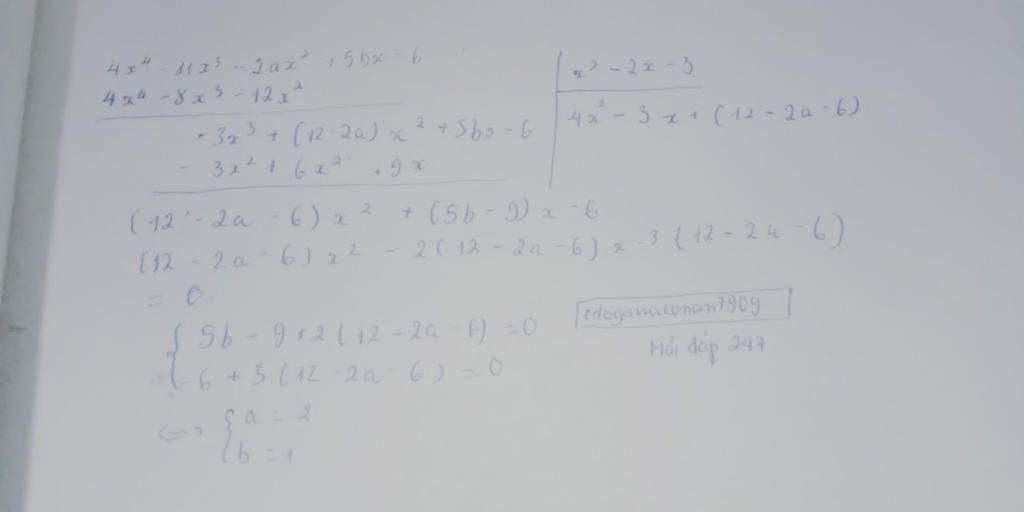 4x⁴ - 11x³ - 2ax² + 5bx - 6
x² - 2x - 3
4x⁴ - 8x³ - 12x²
4x² - 3x + (12 - 2a - 6)
- 3x³ + (12 - 2a) x² + 5bx - 6
- 3x² + 6x² + 9x
(12 - 2a - 6) x² + (5b - 9) x - 6
(12 - 2a - 6) x² - 2(12 - 2a - 6) x - 3 (12 - 2a - 6)
= 0
5b - 9 + 2 (12 - 2a - 6) = 0
- 6 + 3 (12 - 2a - 6) = 0
<=> { a = 2
b = 1
edogawaconan7909
Hỏi đáp 247